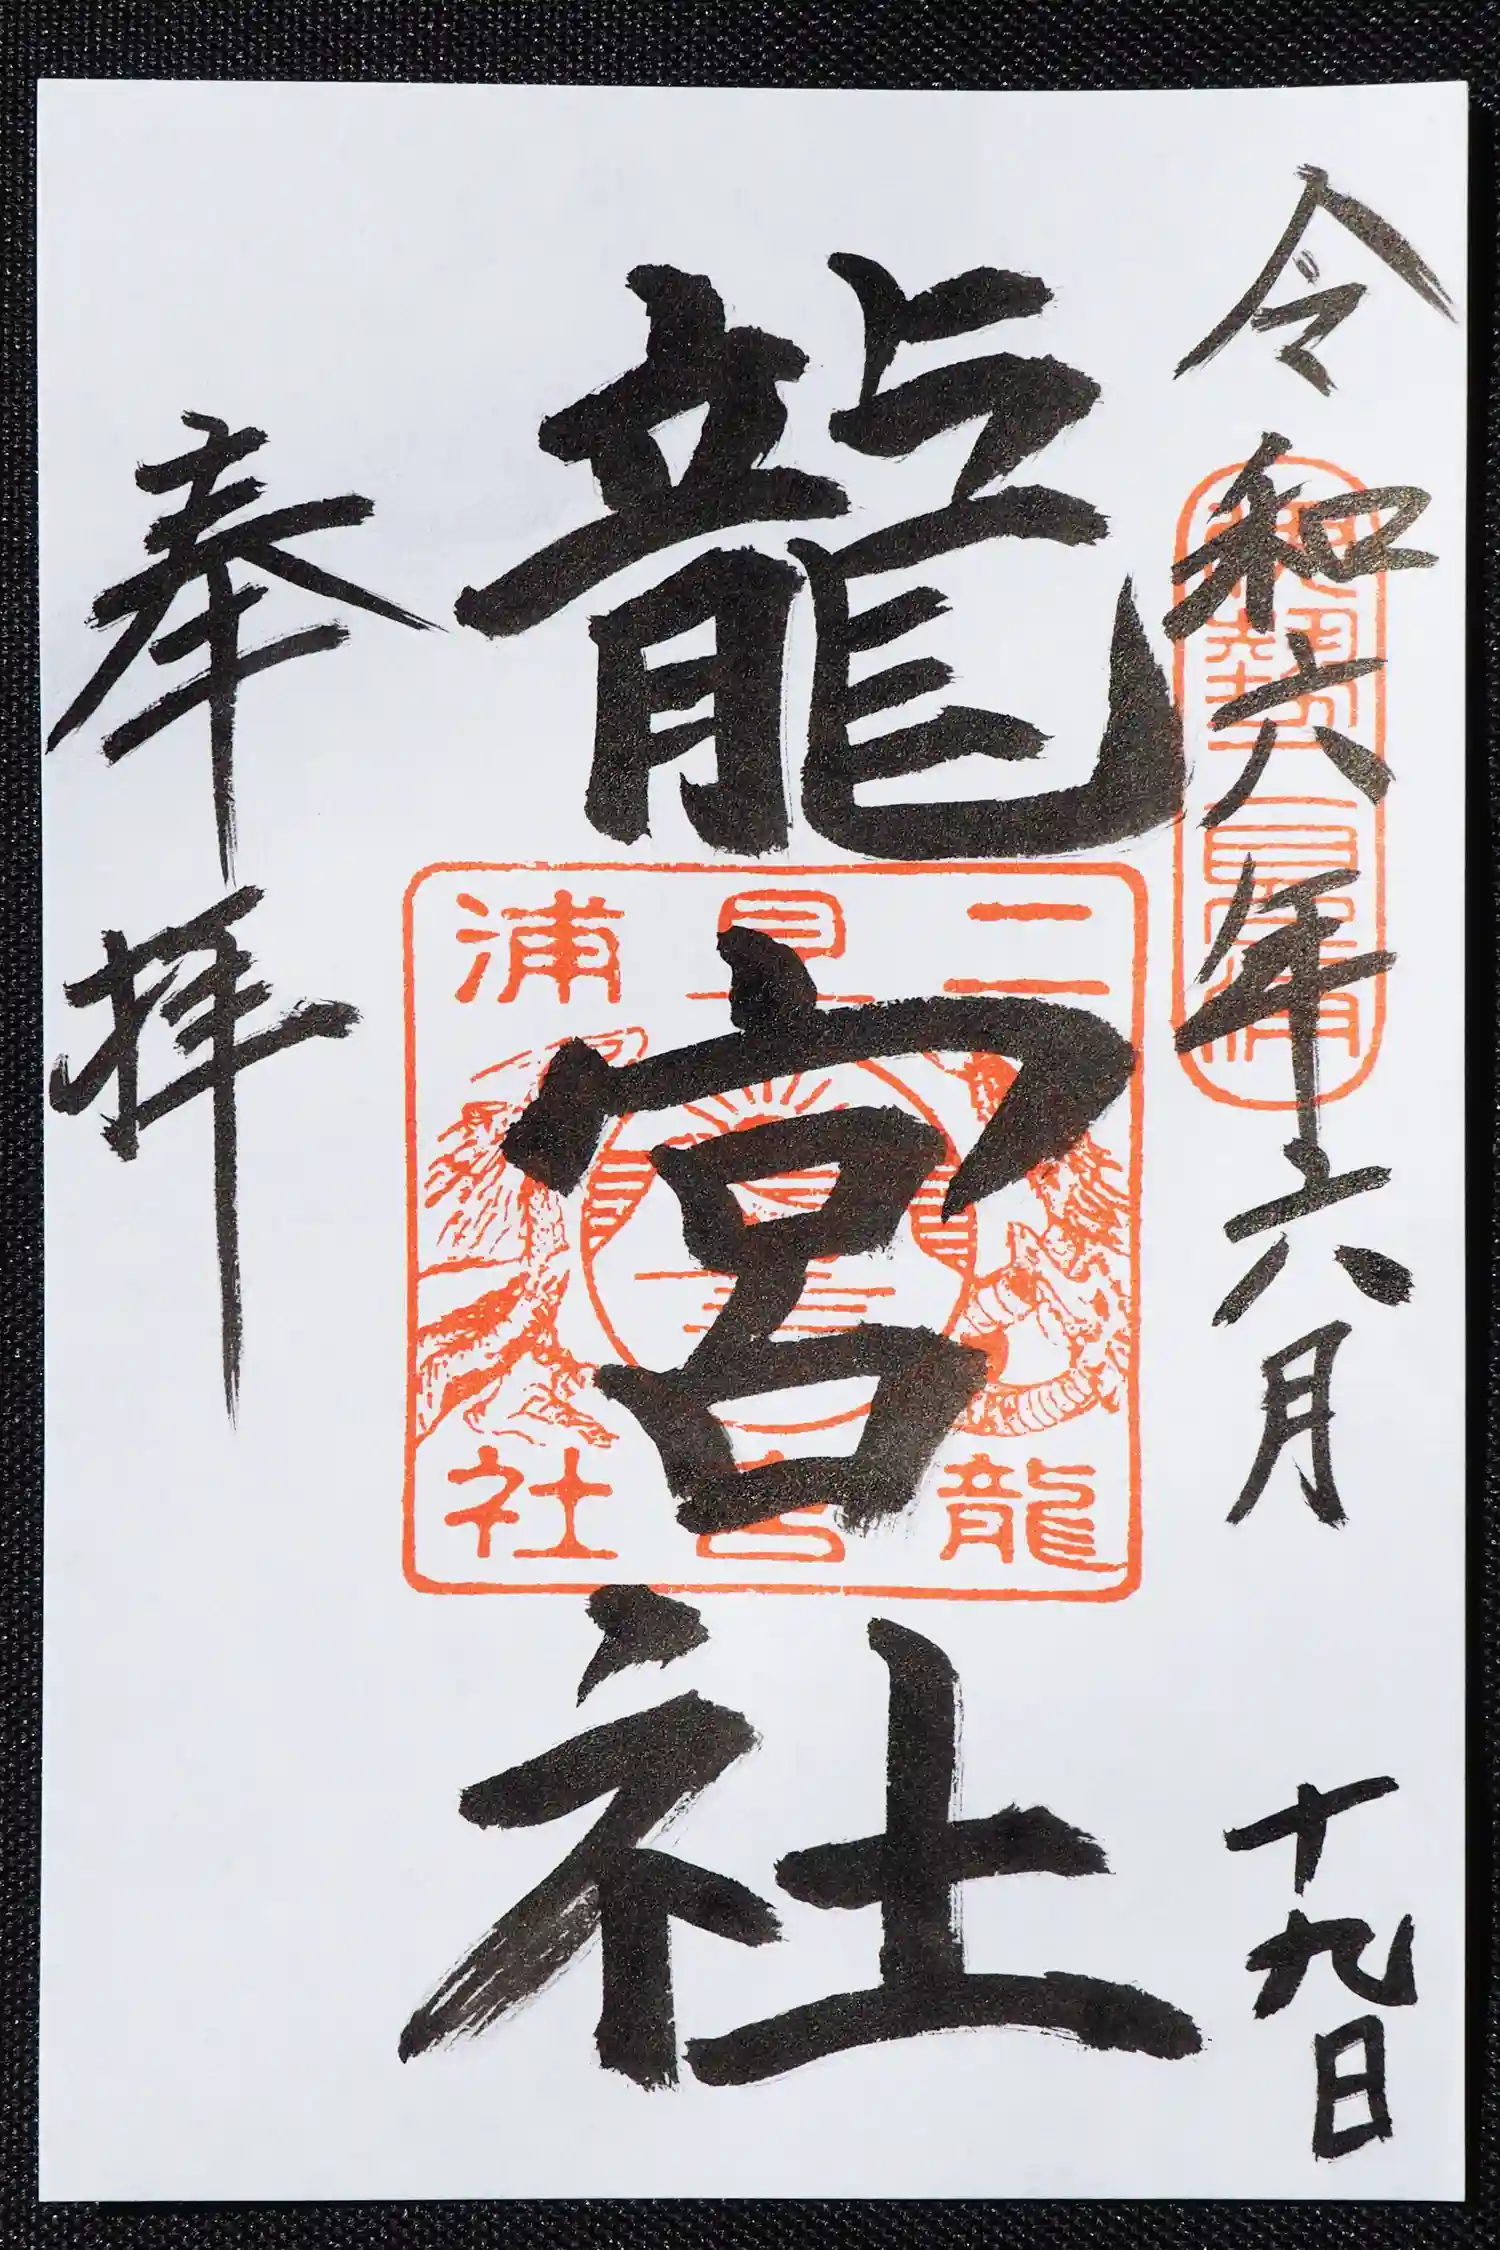 令和六年六月十九日
伊勢二見浦
龍宮社
二見浦
龍宮社
奉拝